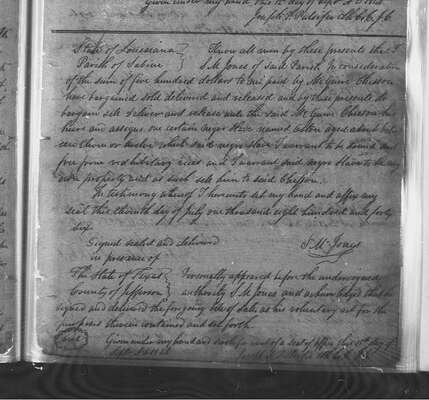 Given under my hand, this 15 day of Sept. A.D. 1846
Joseph P. Pulsifer Clk C. C. J. C.
State of Louisiana } Know all men by these presents that I
Parish of Sabine } S. M. Jones of said Parish in consideration
of the sum of five hundred dollars to me paid by McGuire Chessson
have bargained sold delivered and released and by these presents do
bargain sell deliver and release unto the said McGuire Chessson his
heirs and assigns one certain negro slave named aged about
which said negro slave I warrant to be sound and
free from redhibitory vices and I warrant said negro slave to be my
own property and as such sell him to said Chessson.
In testimony whereof I hereunto set my hand and affix my
seal this day of July one thousand eight hundred and forty
six
Signed sealed and delivered S. M. Jones
in presence of
The State of Texas } Personally appeared before the undersigned
County of Jefferson } authority S. M. Jones and acknowledged that he
signed and delivered the foregoing bill of sale as his voluntary act for the
purposes therein contained and set forth.
Given under my hand and seal of office this 15th day of
Sept.